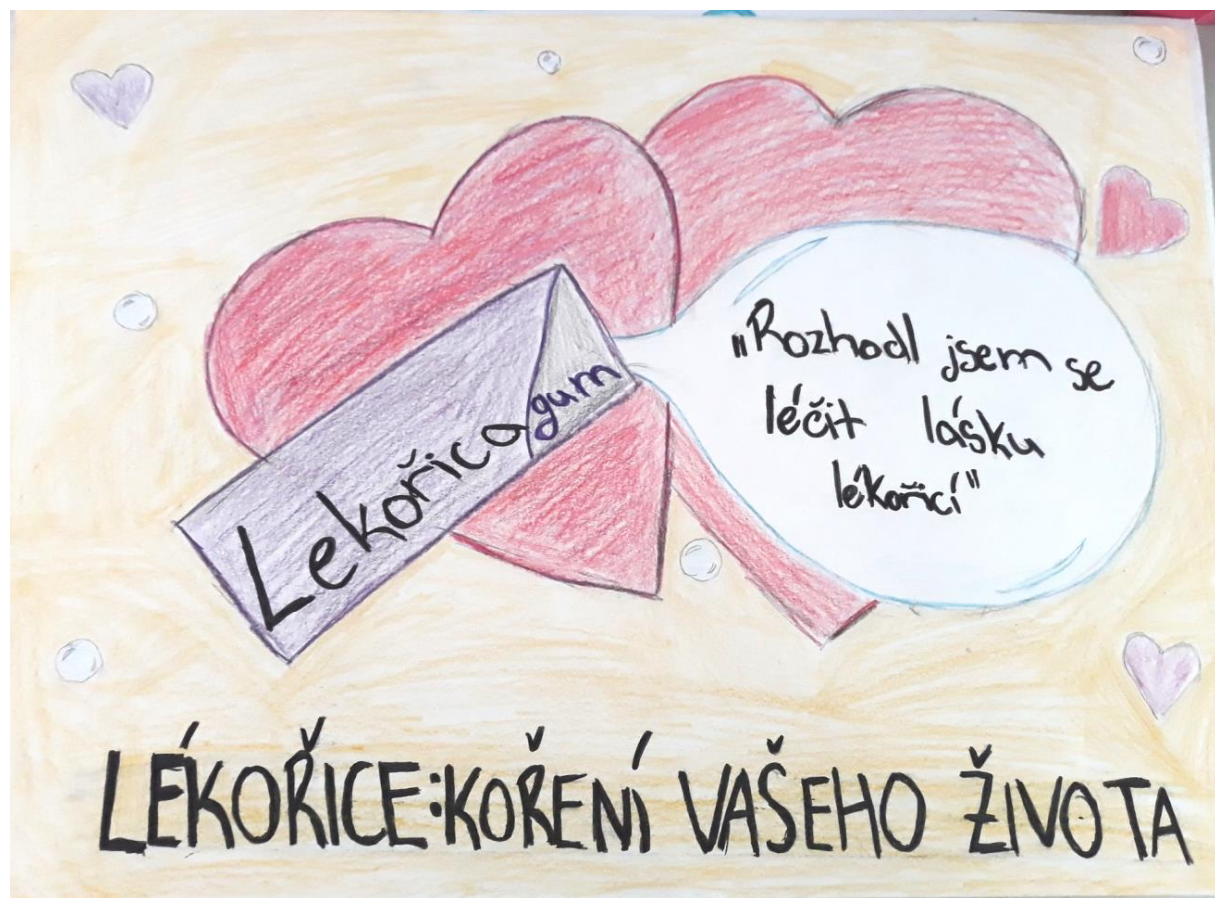 Lekořica gum
„Rozhodl jsem se
léčit lásku
lékořicí"
LÉKOŘICE:KOŘENÍ VAŠEHO ŽIVOTA